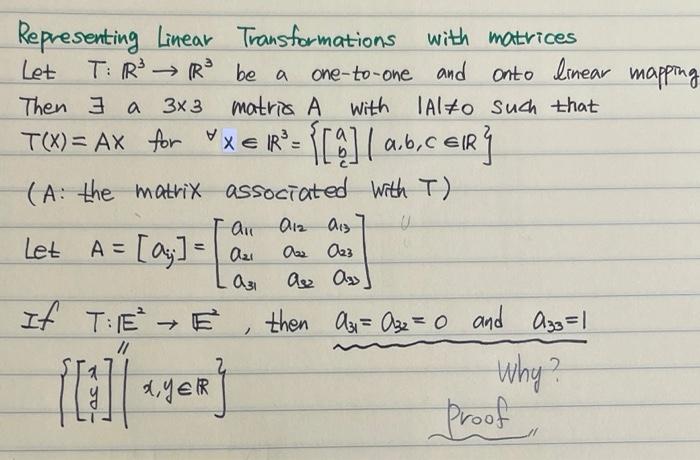 Representing Linear Transformations with matrices
Let T: ℝ³ → ℝ³ be a one-to-one and onto linear mapping
Then ∃ a 3x3 matrix A with |A|≠0 such that
T(X) = AX for ∀ x ∈ ℝ³ = {[a b c] | a,b,c ∈ ℝ}
(A: the matrix associated with T)
Let A = [aᵢⱼ] = [a₁₁ a₁₂ a₁₃
a₂₁ a₂₂ a₂₃
a₃₁ a₃₂ a₃₃]
If T: 𝔼² → 𝔼², then a₃₁ = a₃₂ = 0 and a₃₃ = 1
||
{[x y 1] | x,y ∈ ℝ}
Why?
Proof